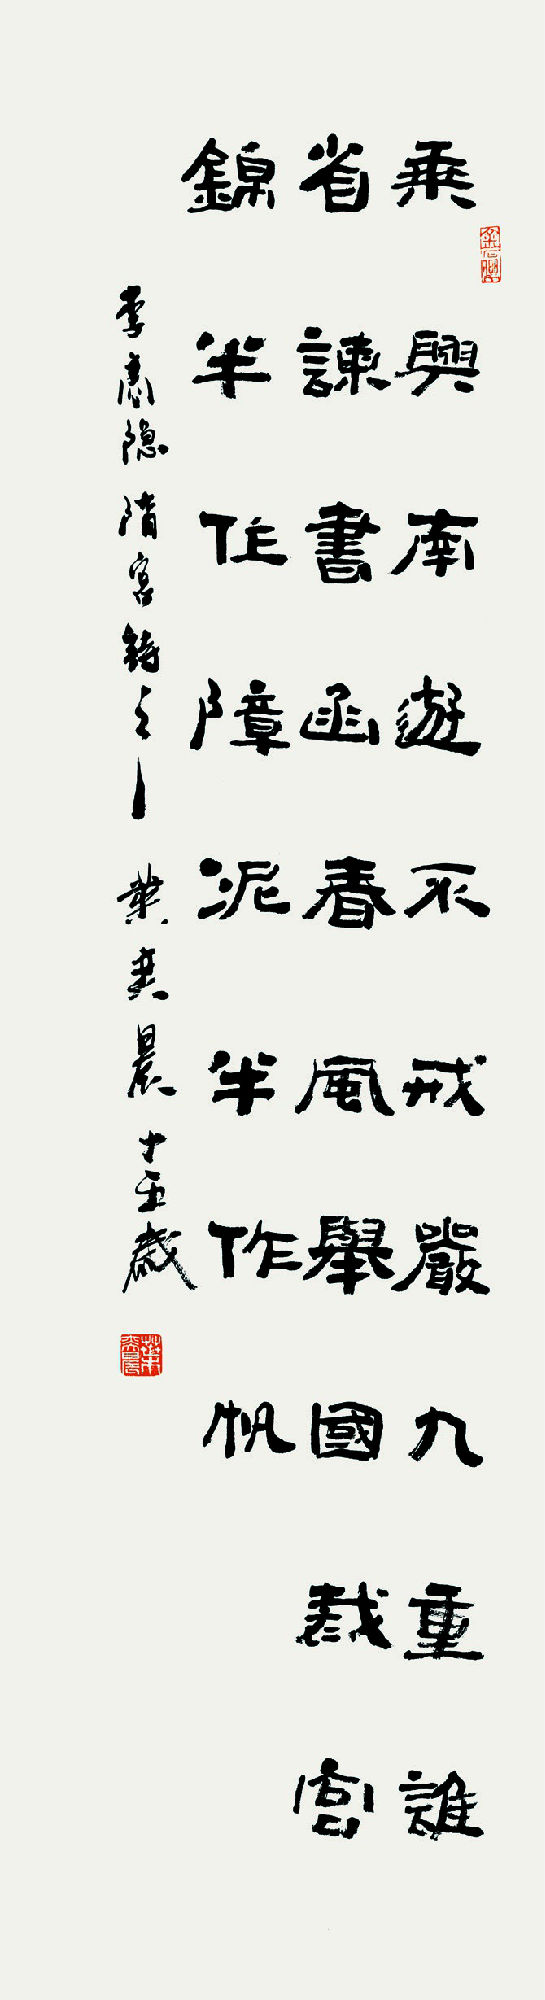 乘興南遊不戒嚴九重誰
省諫書函春風舉國裁宮
錦半作障泥半作帆
李商隐隋宫詩之一 葉奕晨十五歲
葉奕晨